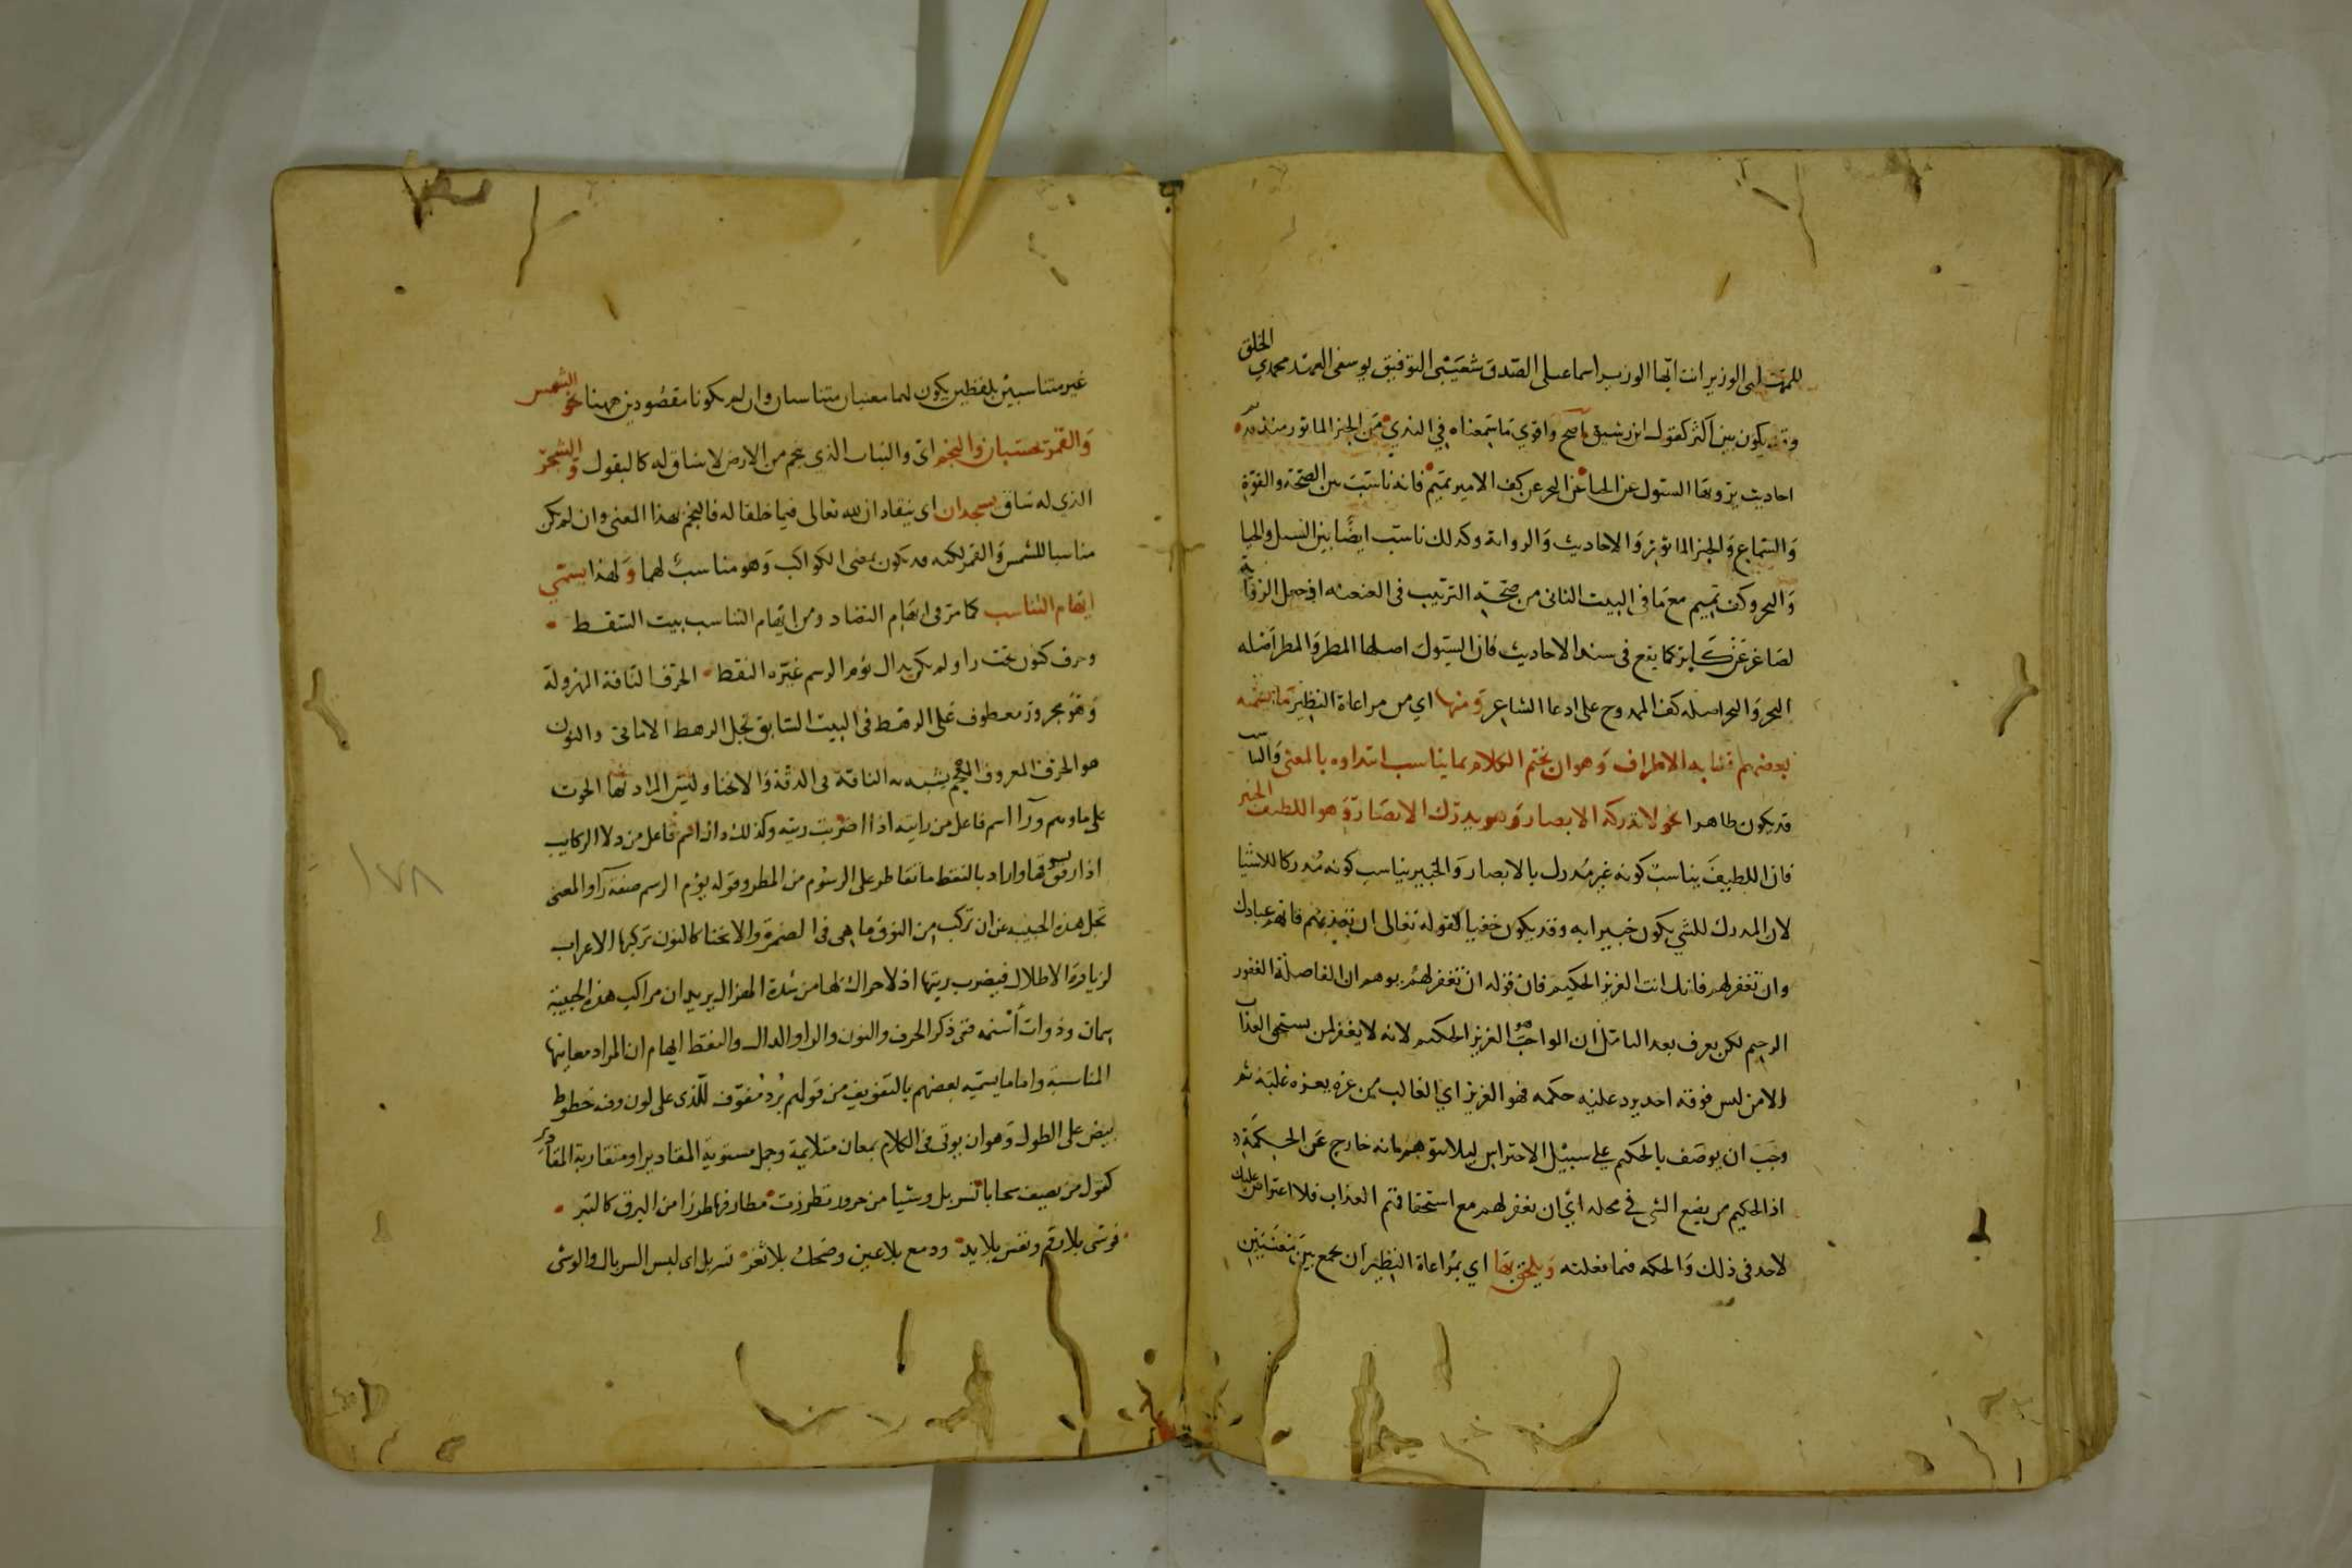 للمهلبي الوزير انت ايها الوزير اسماعيلى الصدق شعيبى التوفيق يوسفى العهد محمدي الخلق
وقد يكون بين اكثر كقول ابن رشيق اصح واقوي ما سمعناه في الندي من الخبر الماثور منذ قديم
احاديث يرويها السيول عن الحيا عن البحر عن كف الامير تميم فانه ناسب بين الصحة والقوة
والسماع والخبر الماثور والاحاديث والرواية وكذلك ناسب ايضا بين السيل والحيا
والبحر وكف تميم مع ما في البيت الثانى من صحة الترتيب فى العنعنه اذ جعل الرواية
لصاغر عن كابر كما يقع فى سند الاحاديث فان السيول اصلها المطر والمطر اصله
البحر والبحر اصله كف الممدوح على ادعا الشاعر ومنها اي من مراعاة النظير ما يسميه
بعضهم تشابه الاطراف وهو ان يختم الكلام بما يناسب ابتداوه بالمعنى والتناسب
قد يكون ظاهرا نحو لا تدركه الابصار وهو يدرك الابصار وهو اللطيف الخبير
فان اللطيف يناسب كونه غير مدرك بالابصار والخبير يناسب كونه مدركا للاشيا
لان المدرك للشي يكون خبيرا به وقد يكون خفيا كقوله تعالى ان تعذبهم فانهم عبادك
وان تغفر لهم فانك انت العزيز الحكيم فان قوله ان تغفر لهم يوهم ان الفاصلة الغفور
الرحيم لكن يعرف بعد التامل ان الواجب هو العزيز الحكيم لانه لا يغفر لمن يستحق العذاب
الا من ليس فوقه احد يرد عليه حكمه فهو العزيز اي الغالب من عزه يعزه غلبه ثم
وجب ان يوصف بالحكيم على سبيل الاحتراس ليلا يتوهم انه خارج عن الحكمة
اذ الحكيم من يضع الشي في محله اي ان تغفر لهم مع استحقاقهم العذاب فلا اعتراض عليك
لاحد فى ذلك والحكمه فيما فعلته ويلحق بها اي بمراعاة النظير ان يجمع بين معنيين
غير متناسبين بلفظين يكون لهما معنيان متناسبان وان لم يكونا مقصودين ههنا نحو الشمس
والقمر بحسبان والنجم اى والنبات الذي ينجم من الارض لا ساق له كالبقول والشجر
الذي له ساق يسجدان اى ينقادان لله تعالى فيما خلقا له فالنجم بهذا المعنى وان لم يكن
مناسبا للشمس والقمر لكنه قد يكون بمعنى الكواكب وهو مناسب لهما ولهذا يسمي
ايهام التناسب كما مر فى ايهام التضاد ومن ايهام التناسب بيت السقط
وحرف كنون تحت راء ولم يكن بدال يؤم الرسم غيره النقط الحرف الناقة المهزولة
وهو مجرور معطوف على الرهط فى البيت السابق تجل الرهط الامائى والنون
هو الحرف المعروف المعجم يشبه به الناقة فى الدقة والانحنا وليس المراد بها الحوت
على ما وهم ورا اسم فاعل من رايته اذا اضربت ريته وكذلك دال اسم فاعل من دلا الركايب
اذا رفق بسوقها واراد بالنقط ما تقاطر على الرسوم من المطر وقوله يؤم الرسم صفة را والمعنى
تجل هذه الحبيبه عن ان تركب من النوق ما هى فى الضمر والانحنا كالنون تركبها الاعراب
لزيارة الاطلال فيضرب ريتها اذ لا حراك لها من شدة الهزال يريد ان مراكب هذه الحبيبة
سمان وذوات اسنمه ففى ذكر الحرف والنون والراء والدال والنقط ايهام ان المراد معانيها
المناسبة واما ما يسميه بعضهم بالتفويف من قولهم برد مفوف للذى على لون وفيه خطوط
بيض على الطول وهو ان يوتى فى الكلام بمعان متلايمة وجمل مستوية المقادير او متقاربة المقادير
كقول من يصف سحابا تسربل وشيا من خزوز تطرزت مطارفها طرزا من البرق كالتبر
فوشى بلا رقم ونقش بلا يد ودمع بلا عين وضحك بلا ثغر تسربل اى لبس السربال والوشى
١٧٨